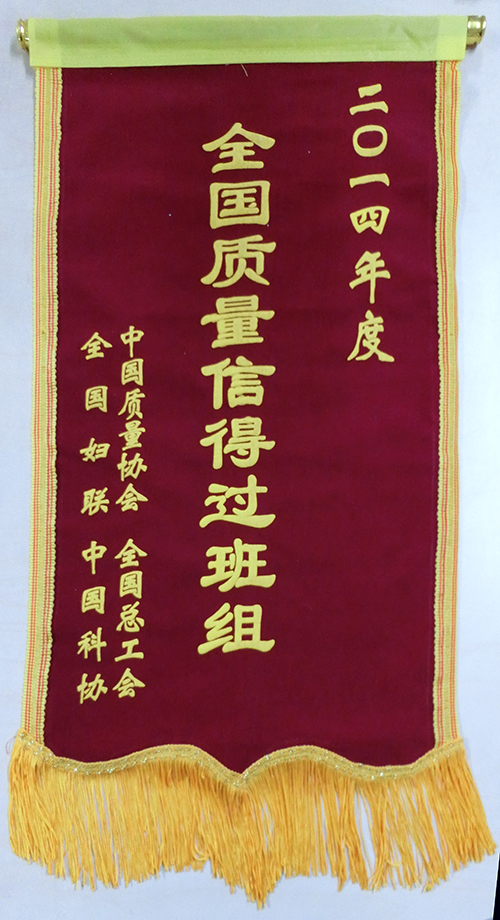 二〇一四年度
全国质量信得过班组
中国质量协会 全国总工会
全国妇联 中国科协